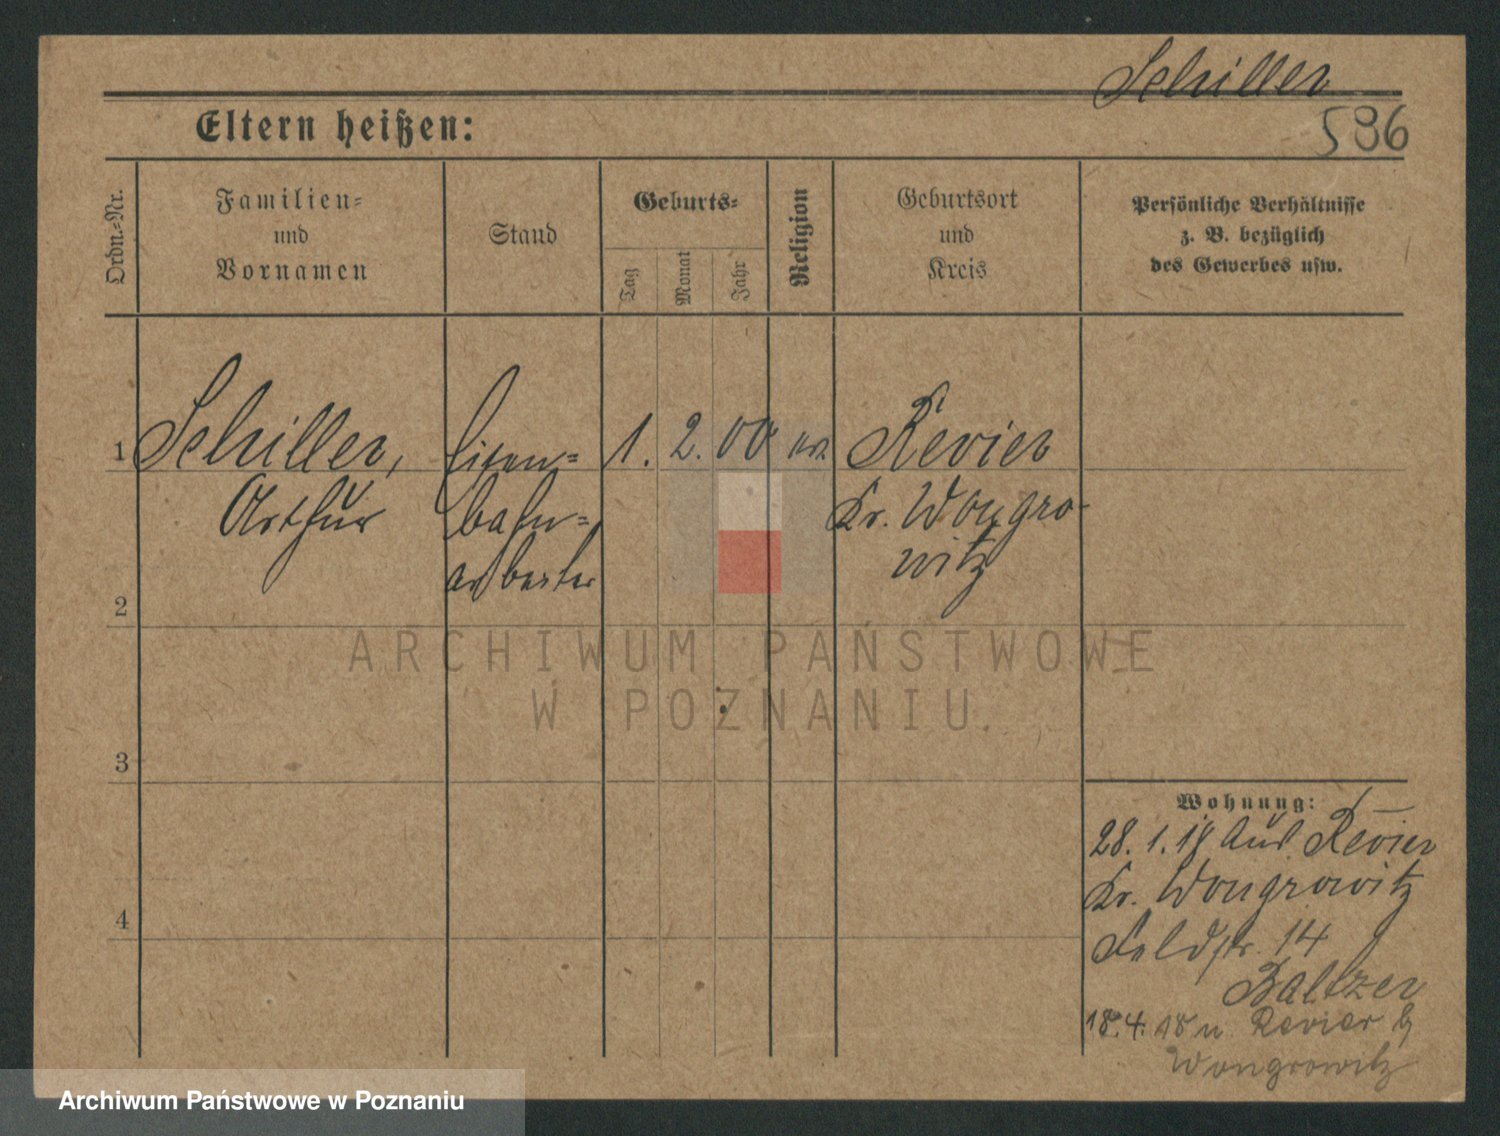 Schiller
586
Eltern heißen:
Ordn.=Nr.
Familien=
und
Vornamen
Stand
Geburts=
Tag
Monat
Jahr
Religion
Geburtsort
und
Kreis
Persönliche Verhältnisse
z. B. bezüglich
des Gewerbes usw.
1
Schiller,
Arthur
Eisen=
bahn=
arbeiter
1. 2. 00
Revier
Kr. Wongro-
witz
2
3
4
Wohnung:
28. 1. 18 aus Revier
Kr. Wongrowitz
Feldstr. 14
Baltzer
18. 4. 18 n. Revier b/
Wongrowitz
ARCHIWUM PAŃSTWOWE
W POZNANIU
Archiwum Państwowe w Poznaniu